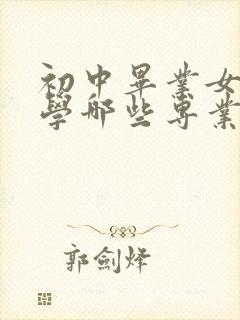 初中畢業女
學哪些專業
郭劍烽